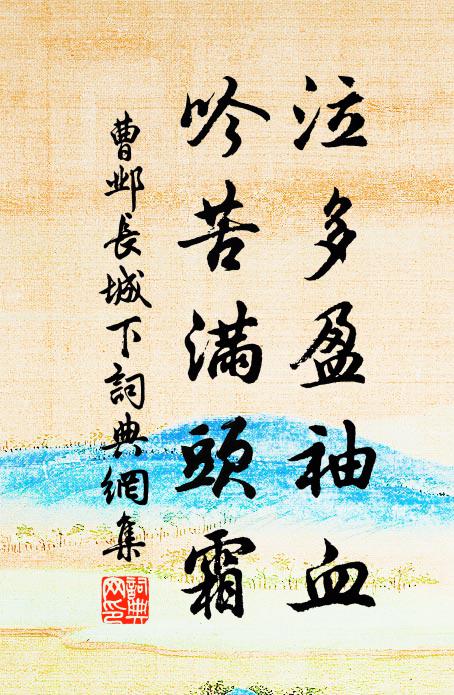 泣多盈袖血
吟苦滿頭霜
曹邺長城下詞典網集